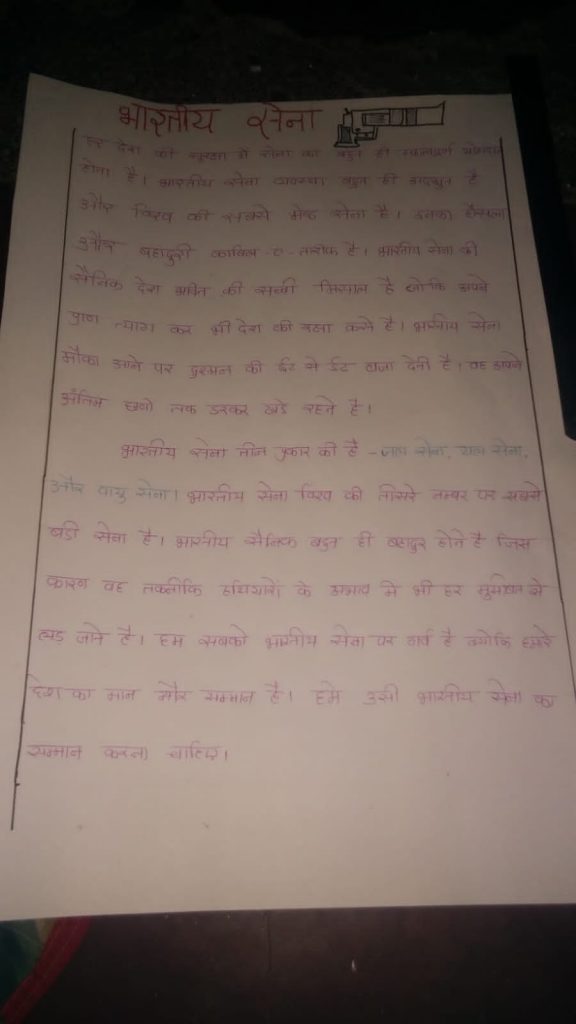 भारतीय सेना
हर देश की सुरक्षा में सेना का बहुत ही महत्वपूर्ण योगदान
होता है। भारतीय सेना व्यवस्था बहुत ही अद्भुत है
और विश्व की सबसे श्रेष्ठ सेना है। इनका हौसला
और बहादुरी काबिल-ए-तारीफ है। भारतीय सेना की
सैनिक देश भक्ति की सच्ची मिसाल है जोकि अपने
प्राण त्याग कर भी देश की रक्षा करते है। भारतीय सेना
मौका आने पर दुश्मन की ईट से ईट बजा देती है। वह अपने
अंतिम क्षणो तक डटकर खडे रहते है।
भारतीय सेना तीन प्रकार की है - जल सेना, थल सेना,
और वायु सेना। भारतीय सेना विश्व की तीसरे नम्बर पर सबसे
बडी सेना है। भारतीय सैनिक बहुत ही बहादुर होते है जिस
कारण वह तकनीकि हथियारों के अभाव मे भी हर मुसीबत से
लड जाते है। हम सबको भारतीय सेना पर गर्व है क्योकि हमारे
देश का मान और सम्मान है। हमे उसी भारतीय सेना का
सम्मान करना चाहिए।